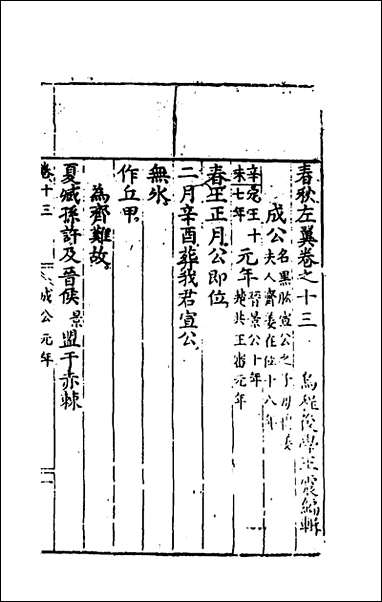 春秋左翼卷之十三
烏程後學王震編輯
成公名黑肱宣公之子母穆姜
夫人齊姜在位十八年
辛未定王十七年元年晉景公十年
楚共王審元年
春王正月公即位
二月辛酉葬我君宣公
無氷
作丘甲
為齊難故
夏臧孫許及晉侯景盟于赤棘
卷十三
成公元年